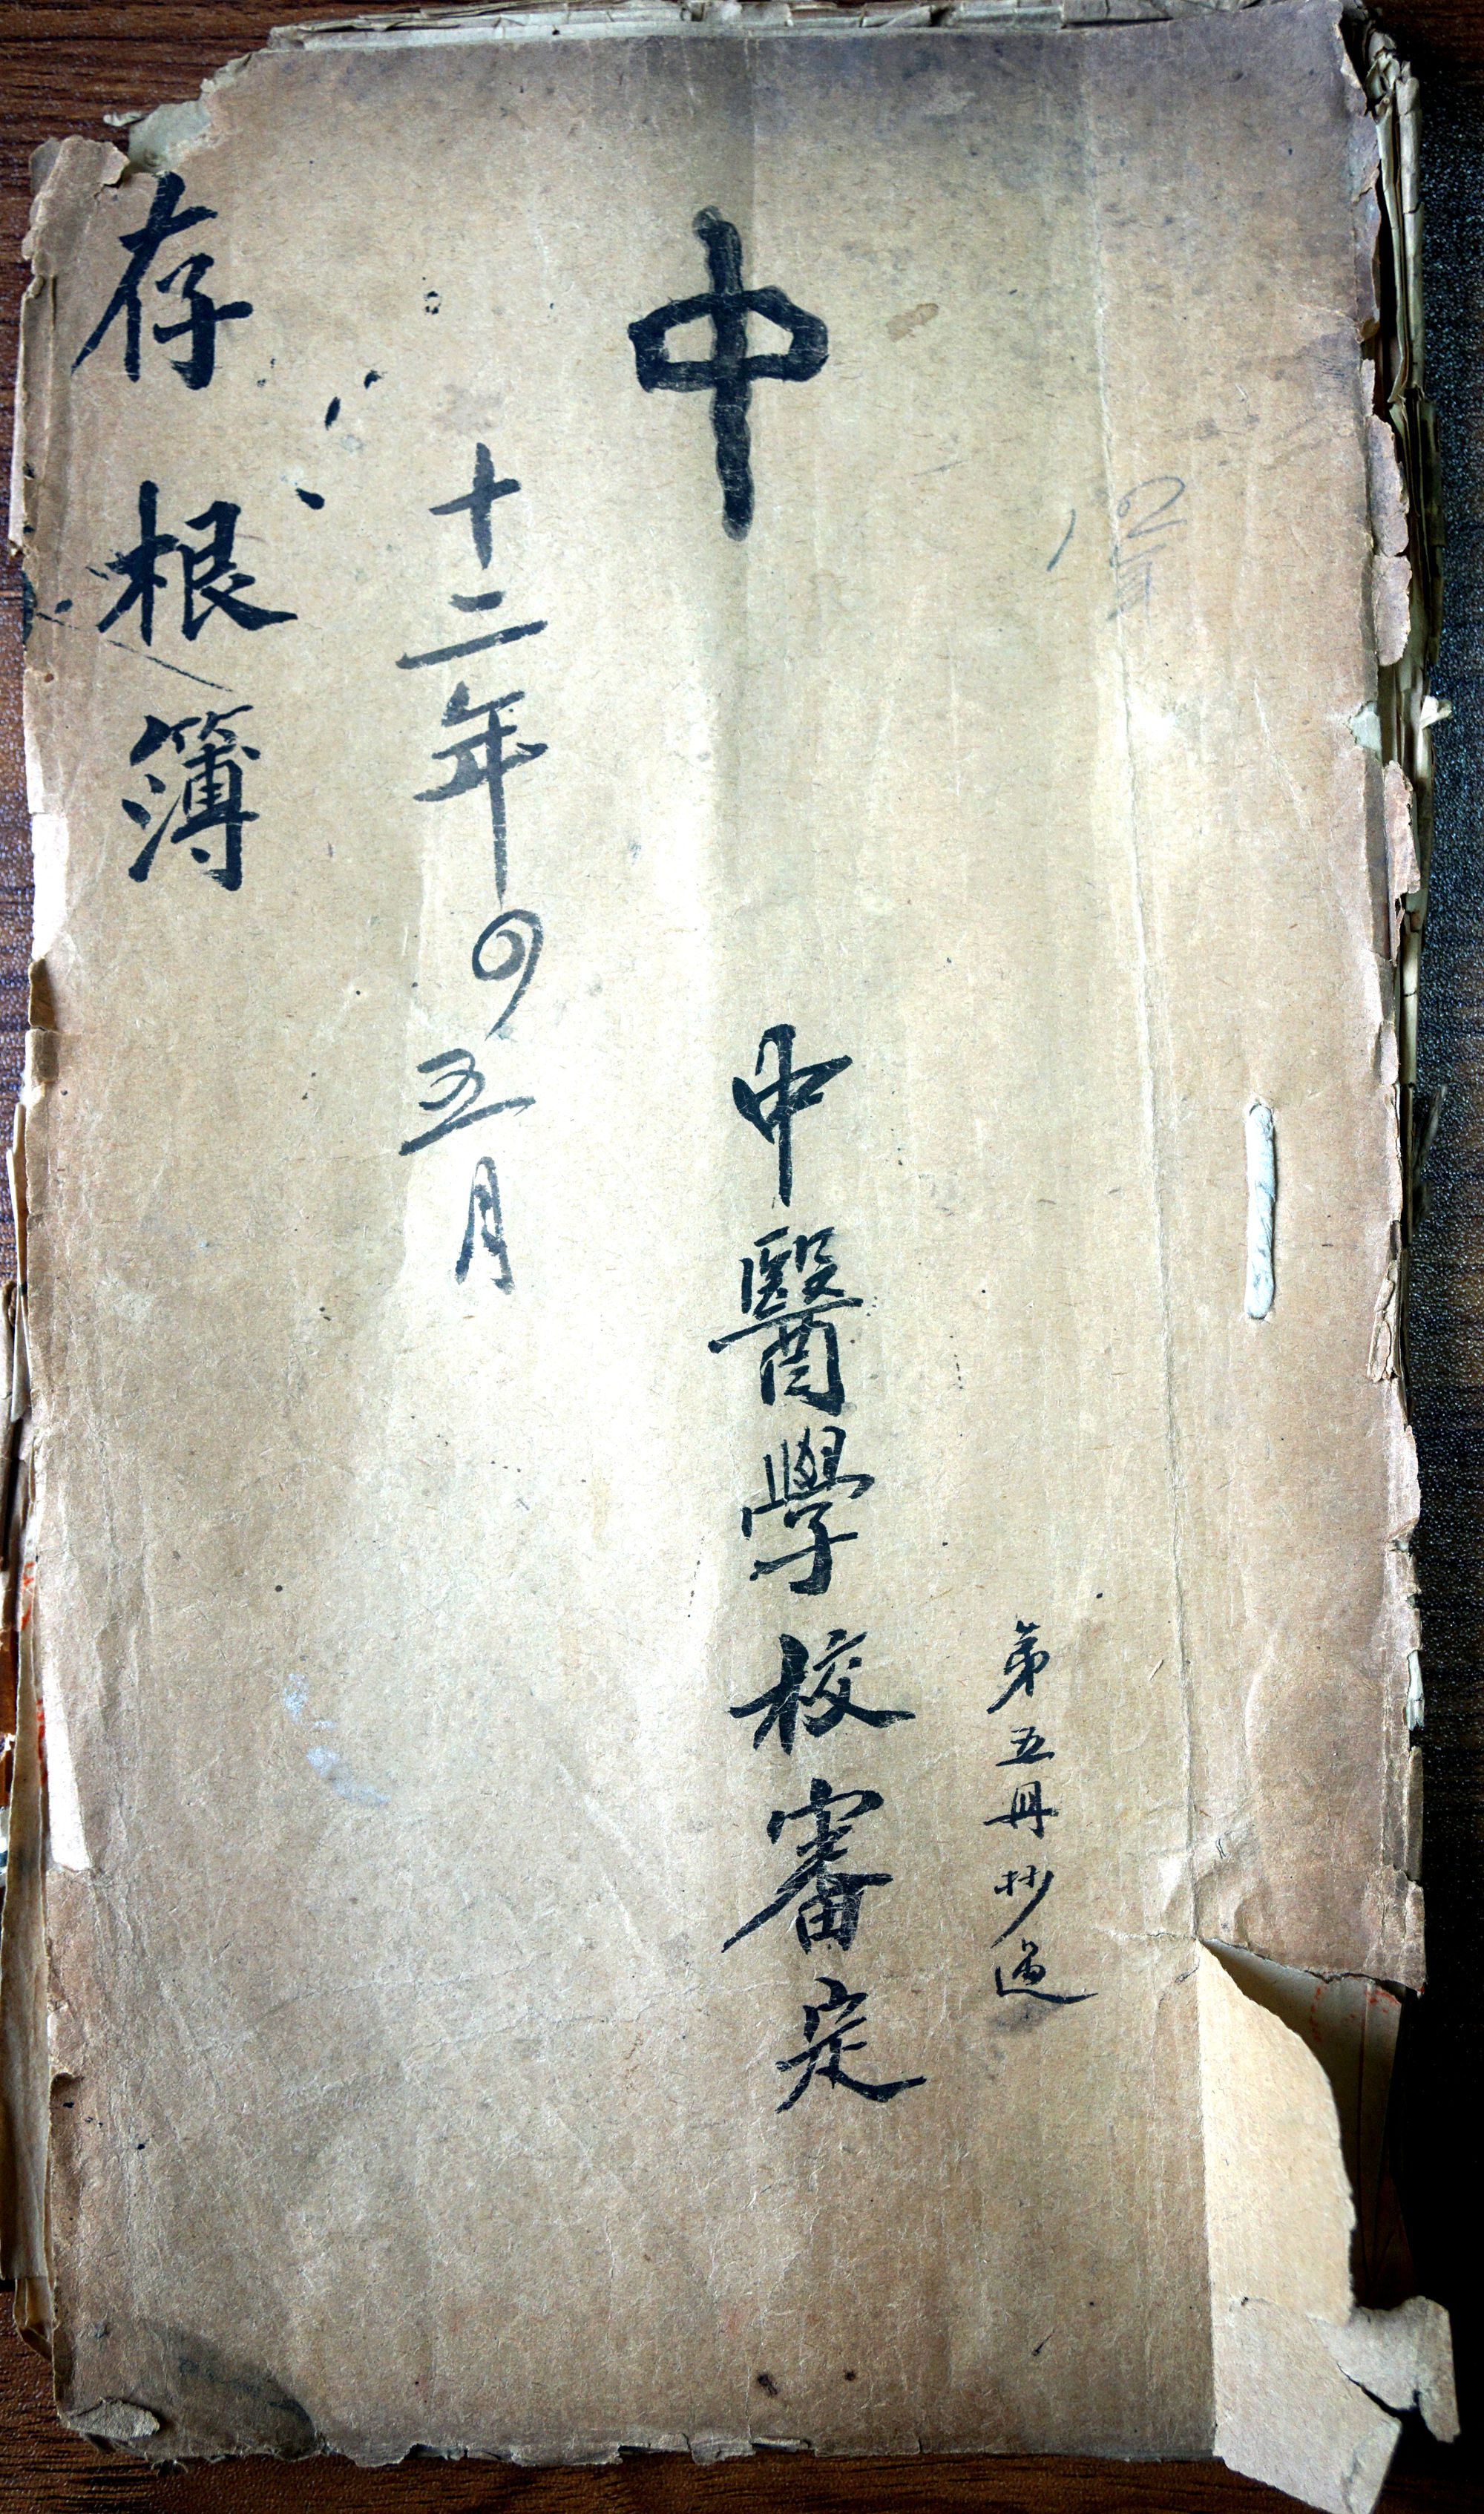 第五冊抄過
中
中醫學校審定
十二年四五月
存根簿